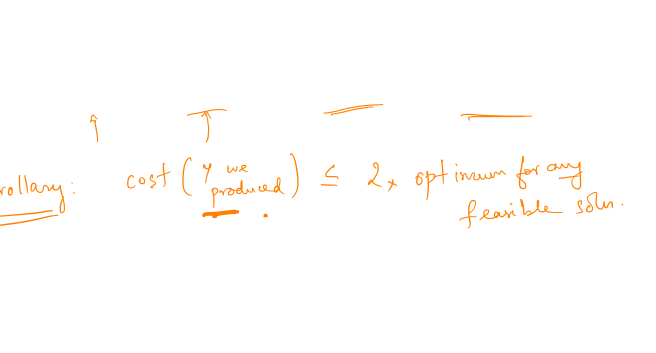 rollary: cost ( y we produced ) ≤ 2 x optimum for any
feasible soln.